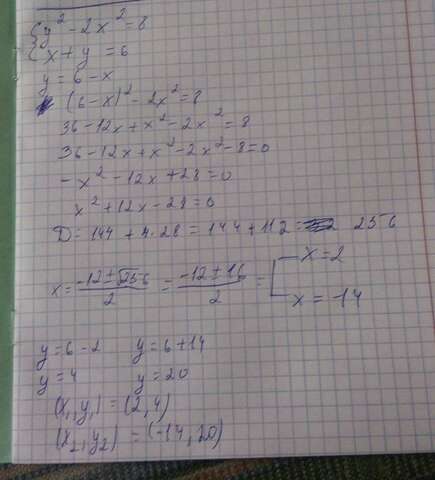 {y² - 2x² = 8
{x + y = 6
y = 6 - x
(6 - x)² - 2x² = 8
36 - 12x + x² - 2x² = 8
36 - 12x + x² - 2x² - 8 = 0
-x² - 12x + 28 = 0
x² + 12x - 28 = 0
D = 144 + 4·28 = 144 + 112 = 256
x = (-12 ± √256)/2 = (-12 ± 16)/2 = [x = 2
x = -14
y = 6 - 2 y = 6 + 14
y = 4 y = 20
(x₁, y₁) = (2, 4)
(x₂, y₂) = (-14, 20)